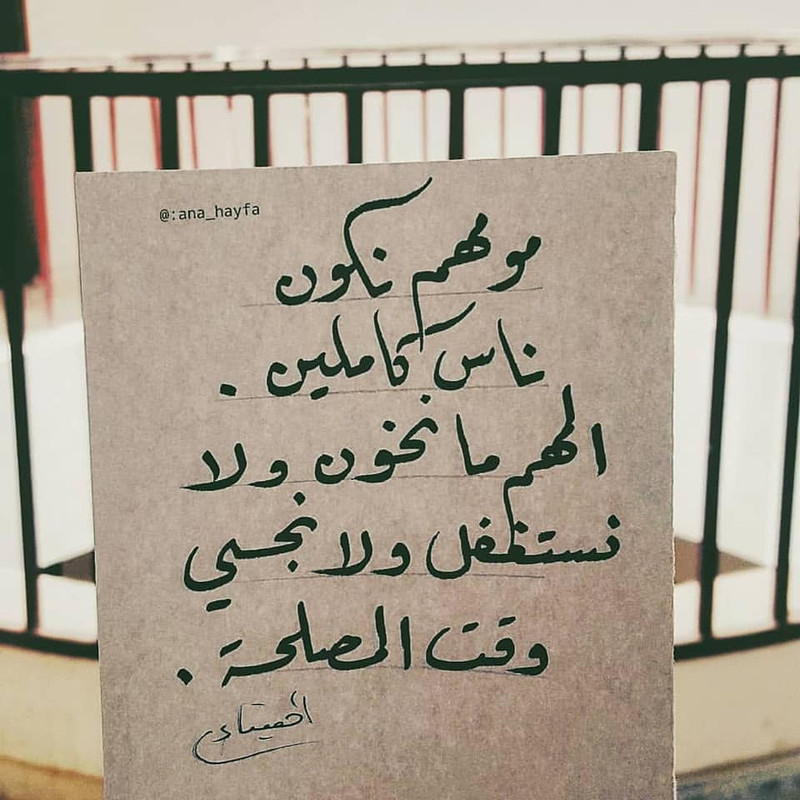 @:ana_hayfa
مو مهم نكون
ناس كاملين .
المهم ما نخون ولا
نستغفل ولا نجسي
وقت المصلحة .